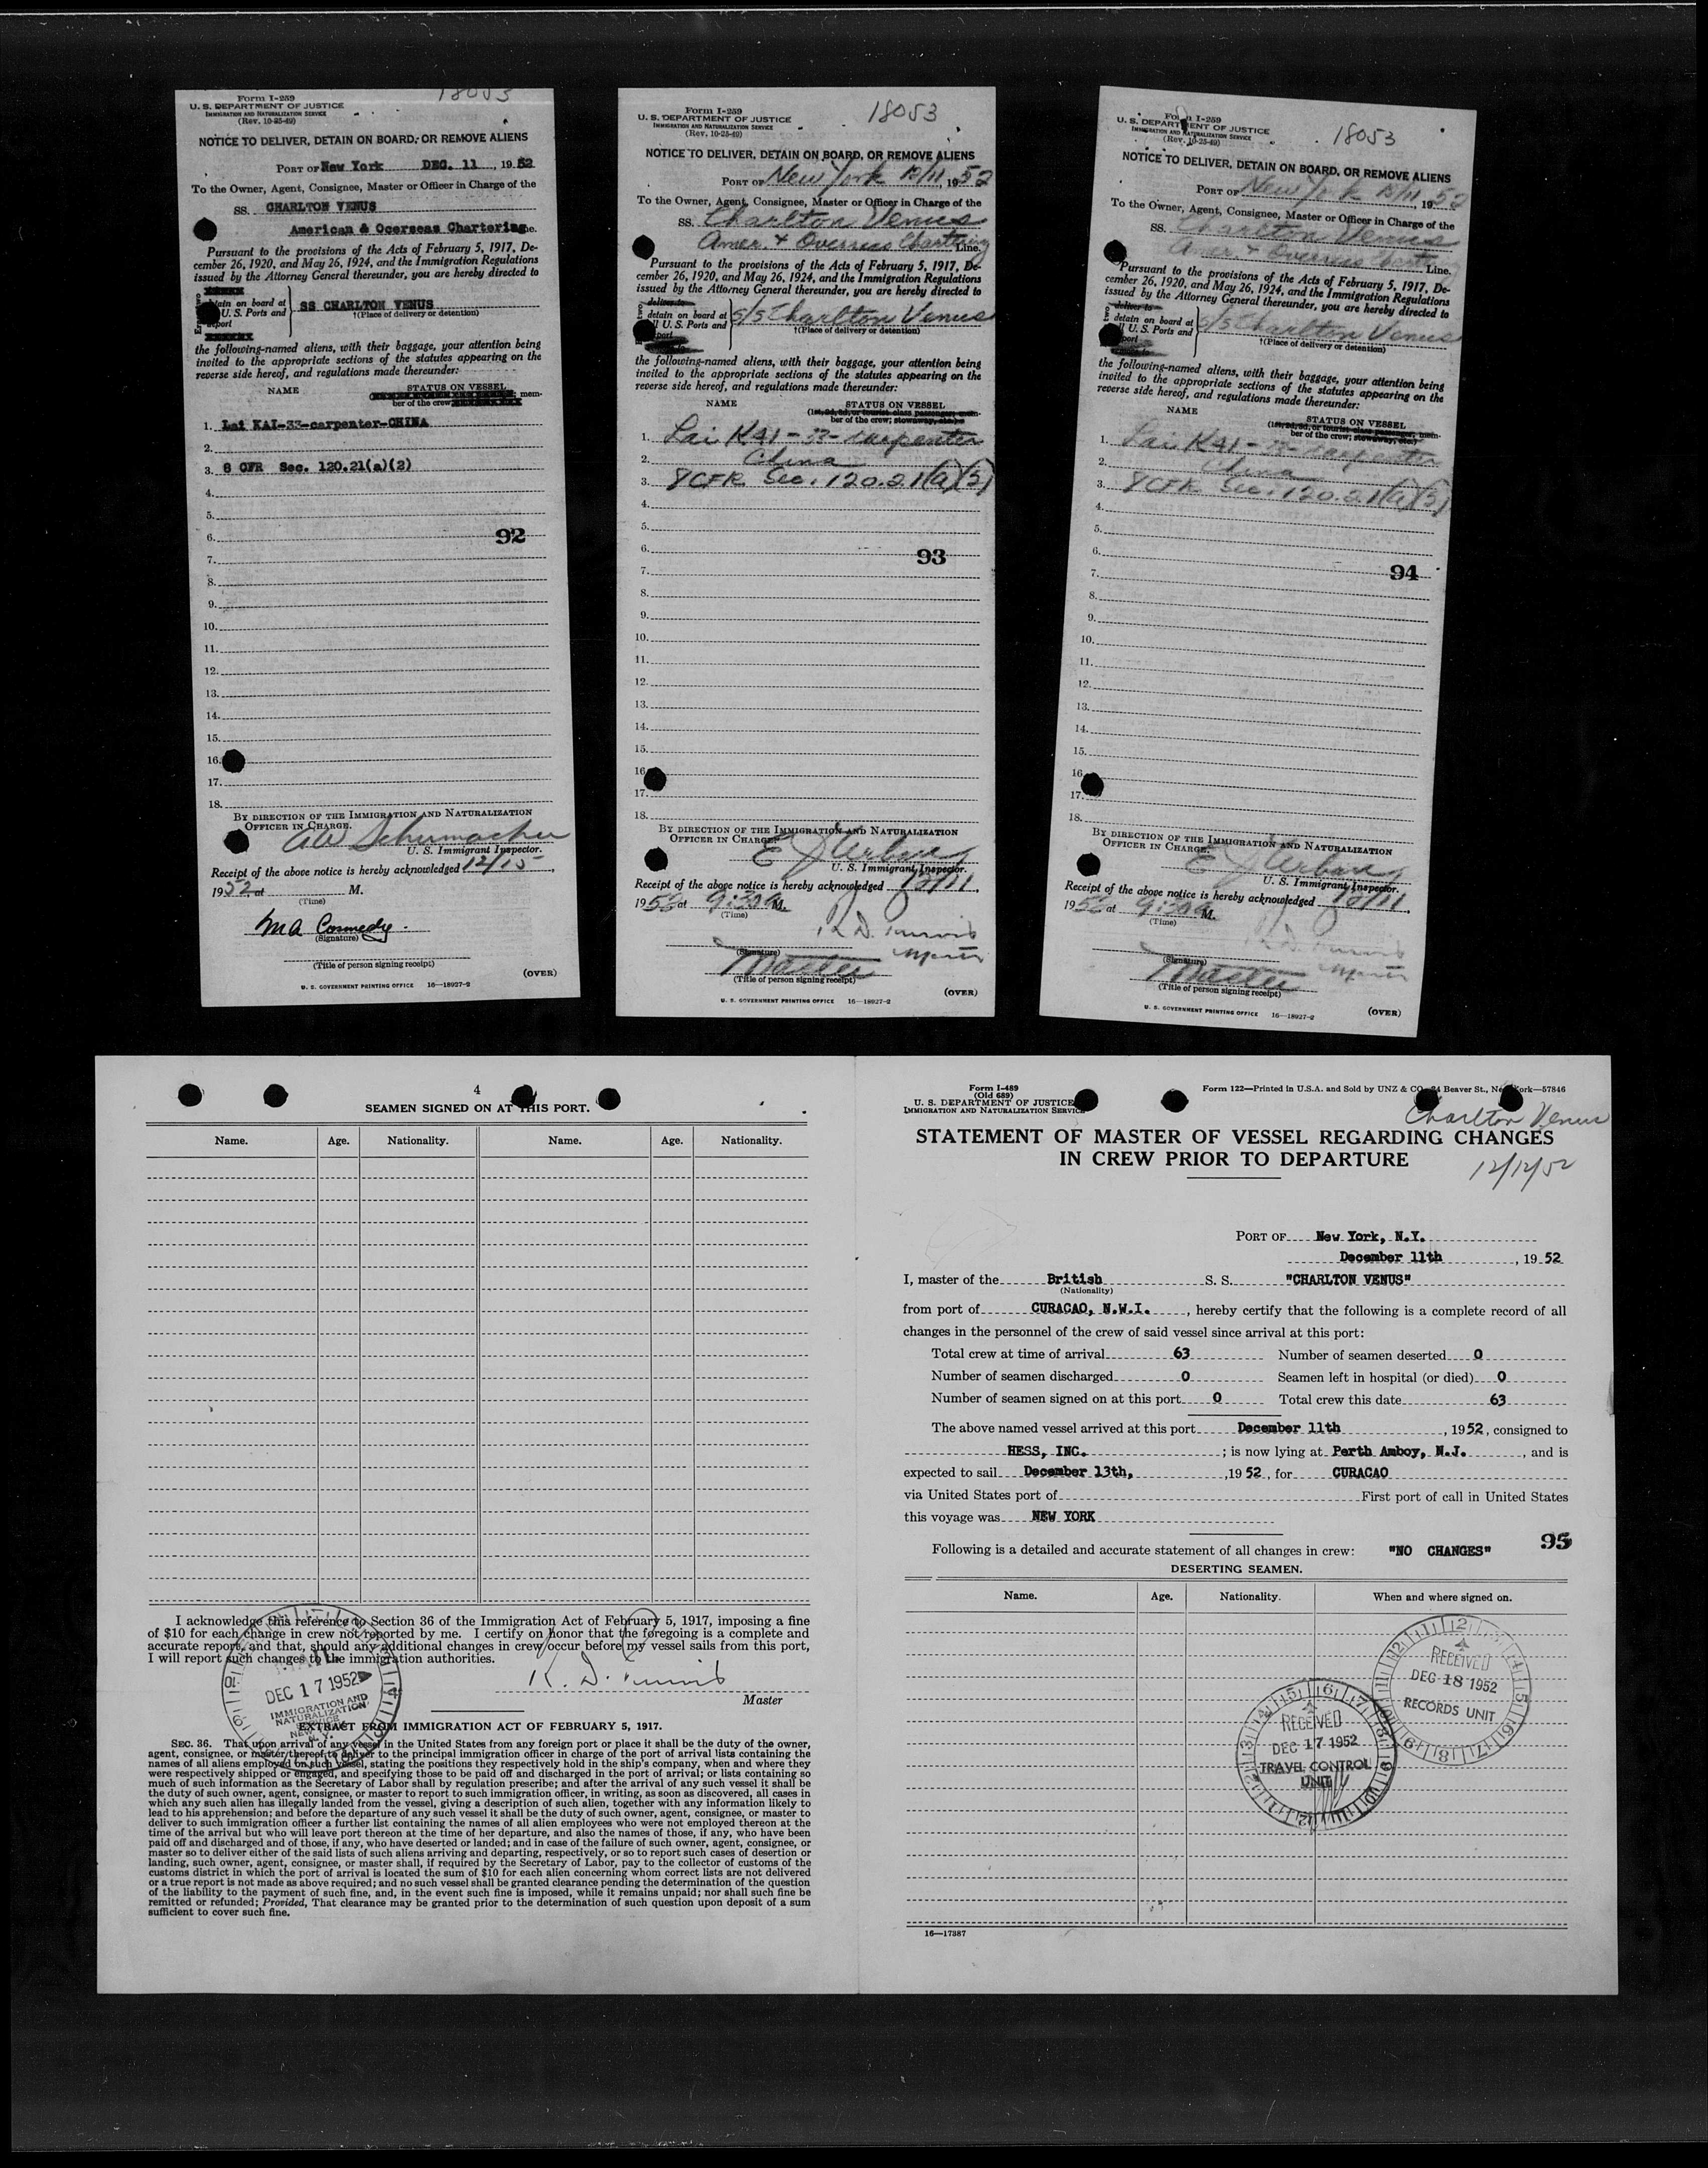 Form I-259
U. S. DEPARTMENT OF JUSTICE
IMMIGRATION AND NATURALIZATION SERVICE
(Rev. 10-25-49)
18053
NOTICE TO DELIVER, DETAIN ON BOARD, OR REMOVE ALIENS
PORT OF New York DEC. 11, 1952
To the Owner, Agent, Consignee, Master or Officer in Charge of the
SS. CHARLTON VENUS
American & Ocerseas Chartering
Pursuant to the provisions of the Acts of February 5, 1917, De-
cember 26, 1920, and May 26, 1924, and the Immigration Regulations
issued by the Attorney General thereunder, you are hereby directed to
detain on board at
U. S. Ports and
SS CHARLTON VENUS
†(Place of delivery or detention)
the following-named aliens, with their baggage, your attention being
invited to the appropriate sections of the statutes appearing on the
reverse side hereof, and regulations made thereunder:
NAME STATUS ON VESSEL
mem-
ber of the crew
1. Lai KAI-33-carpenter-CHINA
2.
3. 8 CFR Sec. 120.21(a)(2)
4.
5.
6. 92
7.
8.
9.
10.
11.
12.
13.
14.
15.
16.
17.
18.
BY DIRECTION OF THE IMMIGRATION AND NATURALIZATION
OFFICER IN CHARGE.
Schumacher
U. S. Immigrant Inspector.
Receipt of the above notice is hereby acknowledged 12/15,
1952, at M.
(Time)
MA Cosmedy.
(Signature)
(Title of person signing receipt)
(OVER)
U. S. GOVERNMENT PRINTING OFFICE 16—18927-2
Form I-259
U. S. DEPARTMENT OF JUSTICE
IMMIGRATION AND NATURALIZATION SERVICE
(Rev. 10-25-49)
18053
NOTICE TO DELIVER, DETAIN ON BOARD, OR REMOVE ALIENS
PORT OF New York 12/11, 1952
To the Owner, Agent, Consignee, Master or Officer in Charge of the
SS. Charlton Venus
Amer. + Overseas Chartering Line.
Pursuant to the provisions of the Acts of February 5, 1917, De-
cember 26, 1920, and May 26, 1924, and the Immigration Regulations
issued by the Attorney General thereunder, you are hereby directed to
deliver to
detain on board at
U. S. Ports and
S/S Charlton Venus
†(Place of delivery or detention)
the following-named aliens, with their baggage, your attention being
invited to the appropriate sections of the statutes appearing on the
reverse side hereof, and regulations made thereunder:
NAME STATUS ON VESSEL
(1st, 2d, 3d, or tourist class passenger, mem-
ber of the crew, stowaway, etc.)
1. Lai KAI-33-carpenter
2. China
3. 8CFR. Sec. 120.21(a)(2)
4.
5.
6. 93
7.
8.
9.
10.
11.
12.
13.
14.
15.
16.
17.
18.
BY DIRECTION OF THE IMMIGRATION AND NATURALIZATION
OFFICER IN CHARGE.
U. S. Immigrant Inspector.
Receipt of the above notice is hereby acknowledged 12/11,
1952 at 9:30 a M.
(Time)
Master
(Signature)
Master
(Title of person signing receipt)
(OVER)
U. S. GOVERNMENT PRINTING OFFICE 16—18927-2
Form I-259
U. S. DEPARTMENT OF JUSTICE
IMMIGRATION AND NATURALIZATION SERVICE
(Rev. 10-25-49)
18053
NOTICE TO DELIVER, DETAIN ON BOARD, OR REMOVE ALIENS
PORT OF New York 12/11, 1952
To the Owner, Agent, Consignee, Master or Officer in Charge of the
SS. Charlton Venus
Amer + Overseas Line.
Pursuant to the provisions of the Acts of February 5, 1917, De-
cember 26, 1920, and May 26, 1924, and the Immigration Regulations
issued by the Attorney General thereunder, you are hereby directed to
deliver to
detain on board at
U. S. Ports and
S/S Charlton Venus
†(Place of delivery or detention)
the following-named aliens, with their baggage, your attention being
invited to the appropriate sections of the statutes appearing on the
reverse side hereof, and regulations made thereunder:
NAME STATUS ON VESSEL
(1st, 2d, 3d, or tourist class passenger, mem-
ber of the crew, stowaway, etc.)
1. Lai KAI-33-carpenter
2. China
3. 8CFR. Sec. 120.21(a)(2)
4.
5.
6.
7. 94
8.
9.
10.
11.
12.
13.
14.
15.
16.
17.
18.
BY DIRECTION OF THE IMMIGRATION AND NATURALIZATION
OFFICER IN CHARGE.
U. S. Immigrant Inspector.
Receipt of the above notice is hereby acknowledged 12/11,
1952 at 9:30 a M.
(Time)
Master
(Signature)
Master
(Title of person signing receipt)
(OVER)
U. S. GOVERNMENT PRINTING OFFICE 16—18927-2
4
SEAMEN SIGNED ON AT THIS PORT.
Name. Age. Nationality. Name. Age. Nationality.
I acknowledge this reference to Section 36 of the Immigration Act of February 5, 1917, imposing a fine
of $10 for each change in crew not reported by me. I certify on honor that the foregoing is a complete and
accurate report, and that, should any additional changes in crew occur before my vessel sails from this port,
I will report such changes to the immigration authorities.
Master
DEC 17 1952
IMMIGRATION AND
NATURALIZATION
SERVICE
EXTRACT FROM IMMIGRATION ACT OF FEBRUARY 5, 1917.
SEC. 36. That upon arrival of any vessel in the United States from any foreign port or place it shall be the duty of the owner,
agent, consignee, or master thereof to deliver to the principal immigration officer in charge of the port of arrival lists containing the
names of all aliens employed on such vessel, stating the positions they respectively hold in the ship's company, when and where they
were respectively shipped or engaged, and specifying those to be paid off and discharged in the port of arrival; or lists containing so
much of such information as the Secretary of Labor shall by regulation prescribe; and after the arrival of any such vessel it shall be
the duty of such owner, agent, consignee, or master to report to such immigration officer, in writing, as soon as discovered, all cases in
which any such alien has illegally landed from the vessel, giving a description of such alien, together with any information likely to
lead to his apprehension; and before the departure of any such vessel it shall be the duty of such owner, agent, consignee, or master to
deliver to such immigration officer a further list containing the names of all alien employees who were not employed thereon at the
time of the arrival but who will leave port thereon at the time of her departure, and also the names of those, if any, who have been
paid off and discharged and of those, if any, who have deserted or landed; and in case of the failure of such owner, agent, consignee, or
master so to deliver either of the said lists of such aliens arriving and departing, respectively, or so to report such cases of desertion or
landing, such owner, agent, consignee, or master shall, if required by the Secretary of Labor, pay to the collector of customs of the
customs district in which the port of arrival is located the sum of $10 for each alien concerning whom correct lists are not delivered
or a true report is not made as above required; and no such vessel shall be granted clearance pending the determination of the question
of the liability to the payment of such fine, and, in the event such fine is imposed, while it remains unpaid; nor shall such fine be
remitted or refunded; Provided, That clearance may be granted prior to the determination of such question upon deposit of a sum
sufficient to cover such fine.
Form I-489
(Old 689)
U. S. DEPARTMENT OF JUSTICE
IMMIGRATION AND NATURALIZATION SERVICE
Form 122—Printed in U.S.A. and Sold by UNZ & CO., 24 Beaver St., New York—57846
Charlton Venus
12/12/52
STATEMENT OF MASTER OF VESSEL REGARDING CHANGES
IN CREW PRIOR TO DEPARTURE
PORT OF New York, N.Y.
December 11th, 1952
I, master of the British S. S. "CHARLTON VENUS"
(Nationality)
from port of CURACAO, N.W.I., hereby certify that the following is a complete record of all
changes in the personnel of the crew of said vessel since arrival at this port:
Total crew at time of arrival 63 Number of seamen deserted 0
Number of seamen discharged 0 Seamen left in hospital (or died) 0
Number of seamen signed on at this port 0 Total crew this date 63
The above named vessel arrived at this port December 11th, 1952, consigned to
HESS, INC. ; is now lying at Perth Amboy, N.J., and is
expected to sail December 13th, 1952, for CURACAO
via United States port of First port of call in United States
this voyage was NEW YORK
95
Following is a detailed and accurate statement of all changes in crew: "NO CHANGES"
DESERTING SEAMEN.
Name. Age. Nationality. When and where signed on.
RECEIVED
DEC 18 1952
RECORDS UNIT
RECEIVED
DEC 17 1952
TRAVEL CONTROL
UNIT
16—17387